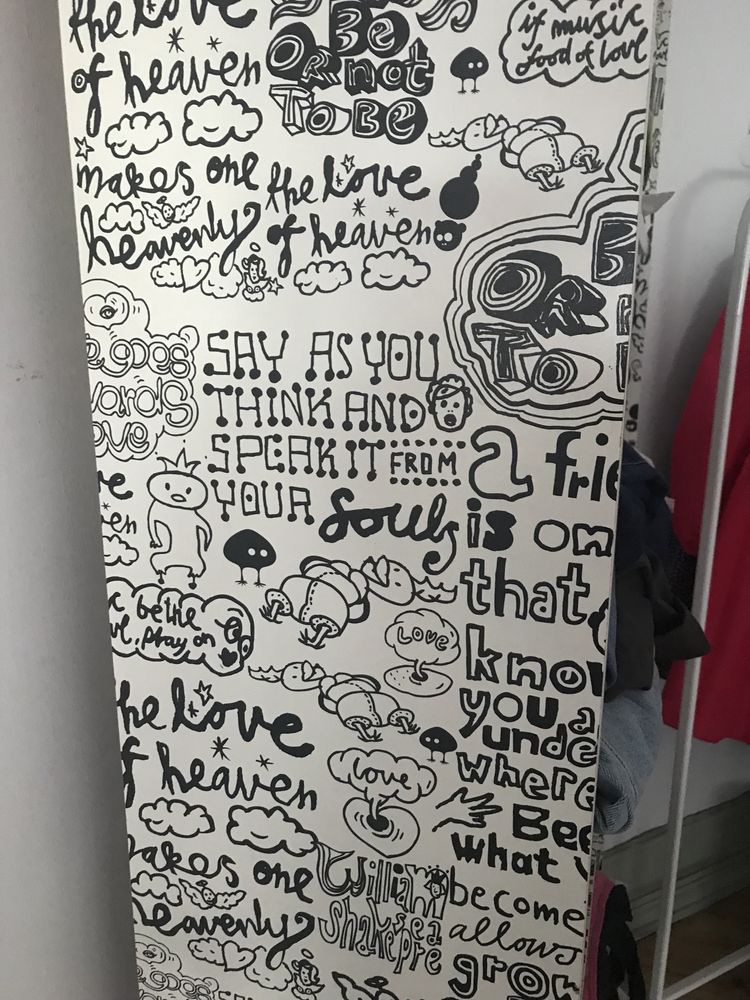 the love
of heaven
makes one
heavenly
Be
OR not
To BE
if music
food of love
the love
of heaven
goes
wards
ove
SAY AS YOU
THINK AND
SPEAK IT FROM
YOUR Souls
O
To
a frie
is on
that
know
you a
unde
where
Bee
what
become
allows
grow
be the
play on
Love
he love
f heaven
akes one
heavenly
love
William
Shakespre
goes